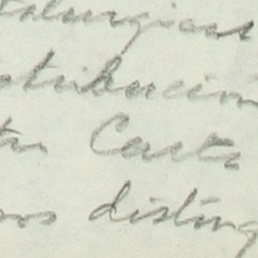 talurgicas
stribución
tu Carta
nos disting